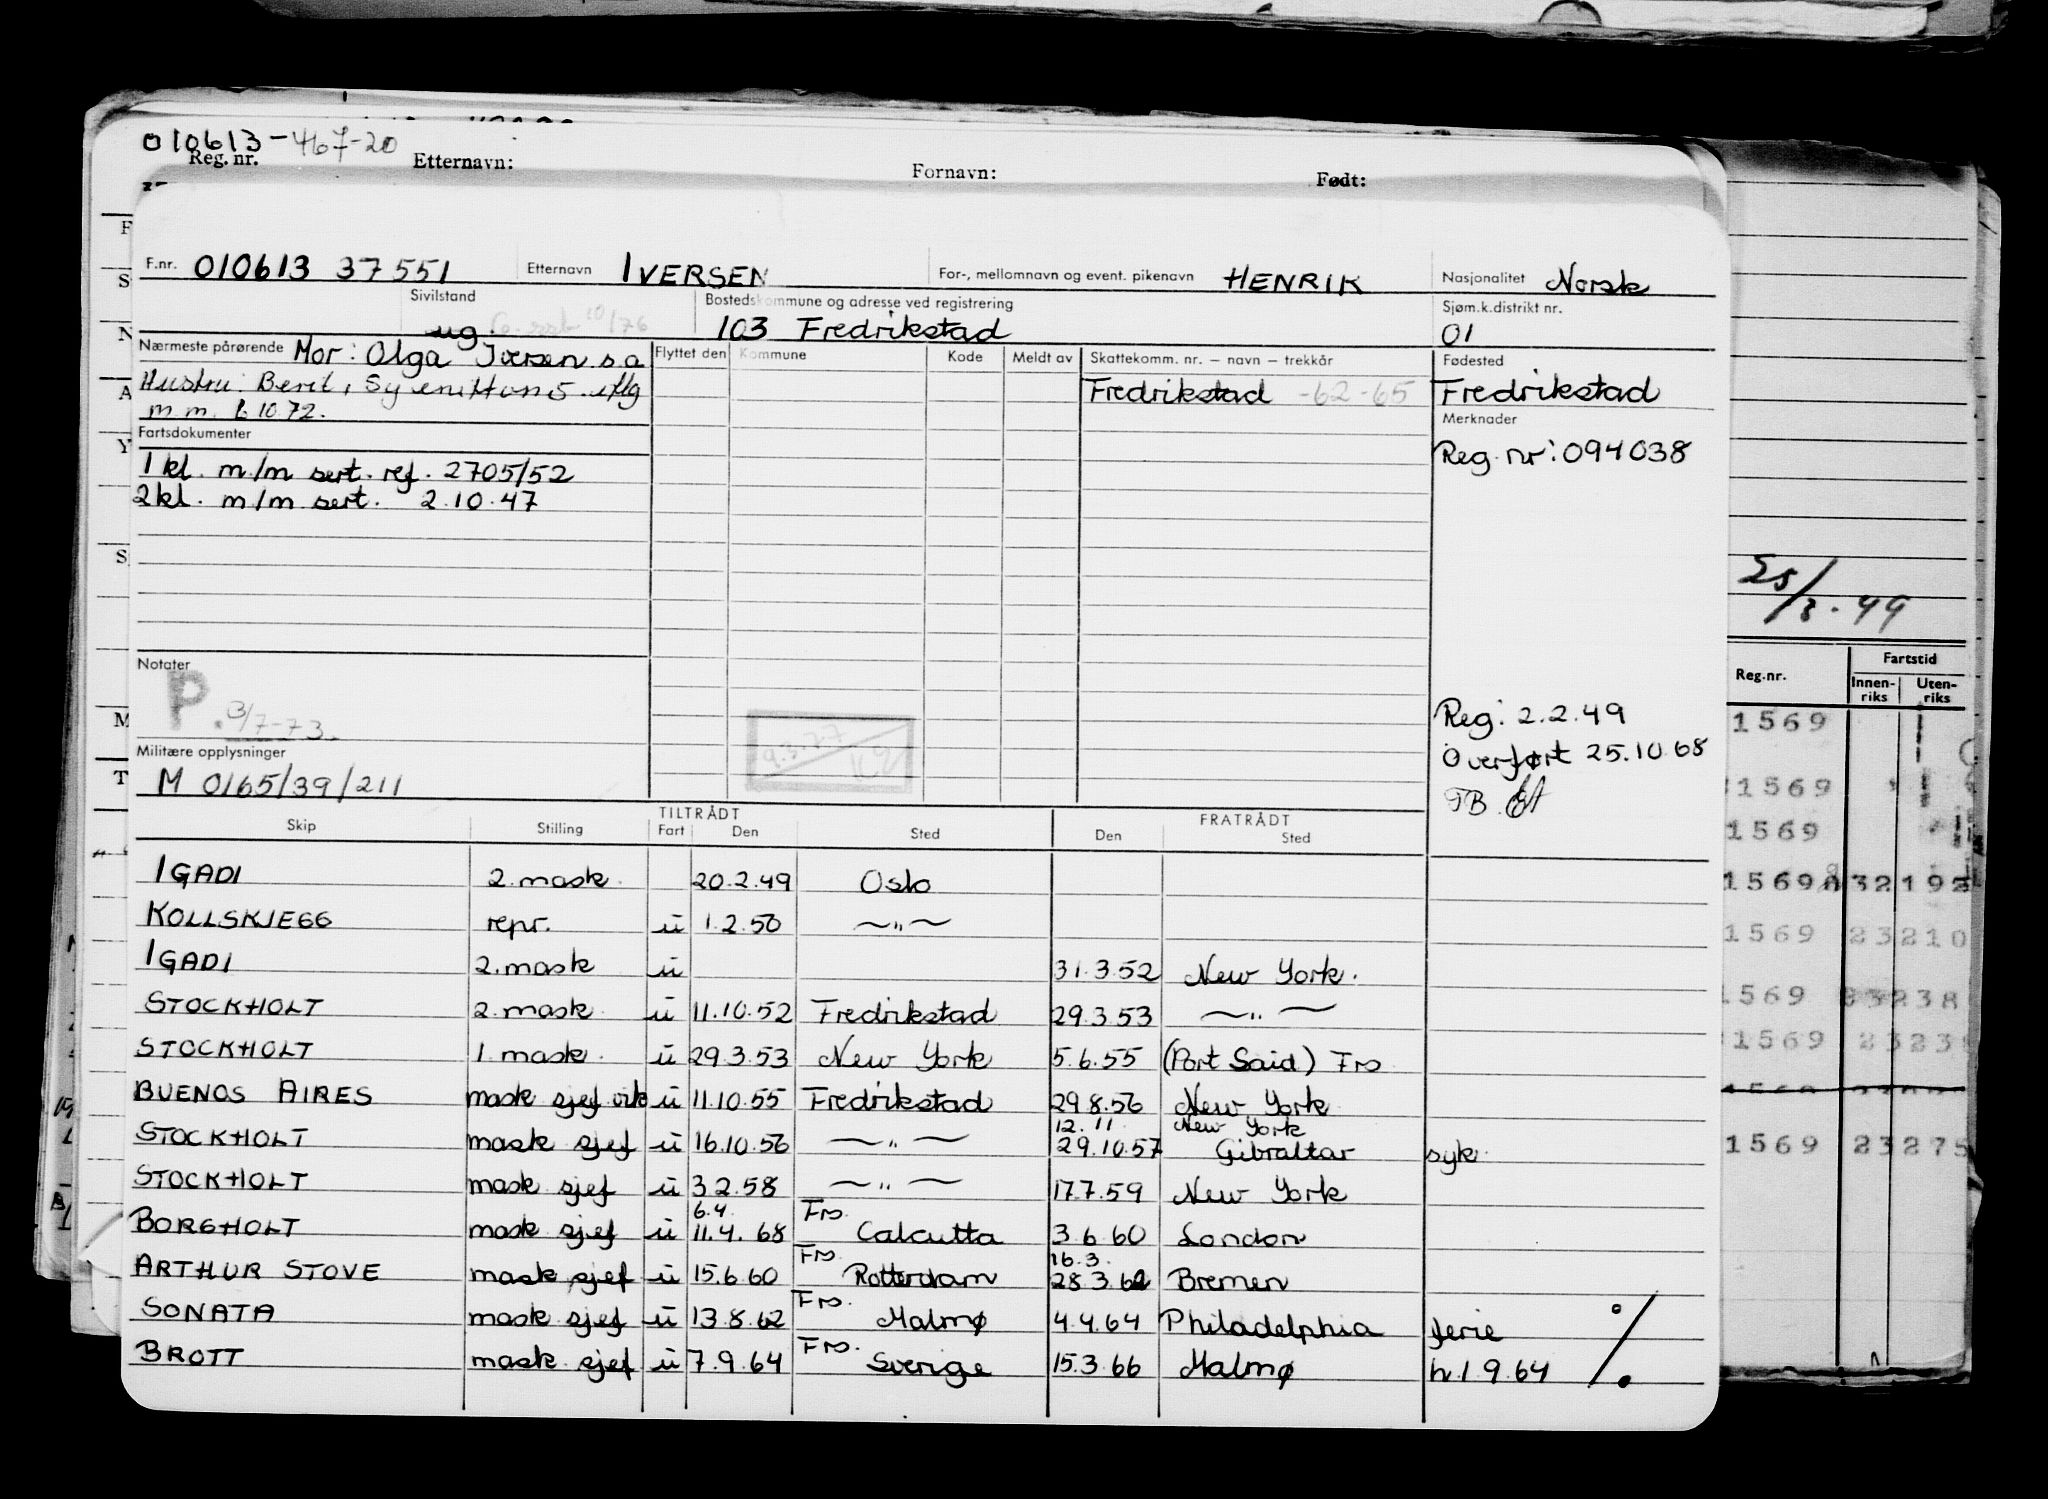 010613-467-20
Reg. nr. Etternavn: Fornavn: Født:
F.nr. 010613 37551 Etternavn IVERSEN For-, mellomnavn og event. pikenavn HENRIK Nasjonalitet Norsk
Sivilstand Bostedskommune og adresse ved registrering Sjøm.k.distrikt nr.
ug. 10/76 103 Fredrikstad 01
Nærmeste pårørende Mor: Olga Iversen s.a Flyttet den Kommune Kode Meldt av Skattekomm. nr. – navn – trekkår Fødested
Hustru: Berit, Fredrikstad -62-65 Fredrikstad
m.m. 6.10.72. Merknader
Fartsdokumenter
1 kl. m/m sert. ref. 2705/52 Reg. nr: 094038
2 kl. m/m sert. 2.10.47
25/3.49
Reg.nr. Fartstid
Innen-riks Uten-riks
Notater
P. 3/7-73. 9.3.77 Reg: 2.2.49
1569
Militære opplysninger Overført 25.10.68
M 0165/39/211 TB
1569
TILTRÅDT FRATRÅDT
Skip Stilling Fart Den Sted Den Sted
1569
IGADI 2. mask. 20.2.49 Oslo
1569 32192
KOLLSKJEGG repr. u 1.2.50 —"—
1569 23210
IGADI 2. mask u 31.3.52 New York.
1569 238
STOCKHOLT 2. mask. u 11.10.52 Fredrikstad 29.3.53 —"—
1569 2323
STOCKHOLT 1. mask. u 29.3.53 New York 5.6.55 (Port Said) Frs
BUENOS AIRES mask sjef vik u 11.10.55 Fredrikstad 29.8.56 New York
12.11 New York
STOCKHOLT mask sjef u 16.10.56 —"— 29.10.57 Gibraltar syk.
1569 23275
STOCKHOLT mask sjef u 3.2.58 —"— 17.7.59 New York
6.4. Frs.
BORGHOLT mask sjef u 11.4.68 Calcutta 3.6.60 London
Frs. 16.3.
ARTHUR STOVE mask sjef u 15.6.60 Rotterdam 28.3.62 Bremen
Frs.
SONATA mask sjef u 13.8.62 Malmø 4.4.64 Philadelphia ferie
Frs.
BROTT mask sjef u 7.9.64 Sverige 15.3.66 Malmø h.1.9.64 %